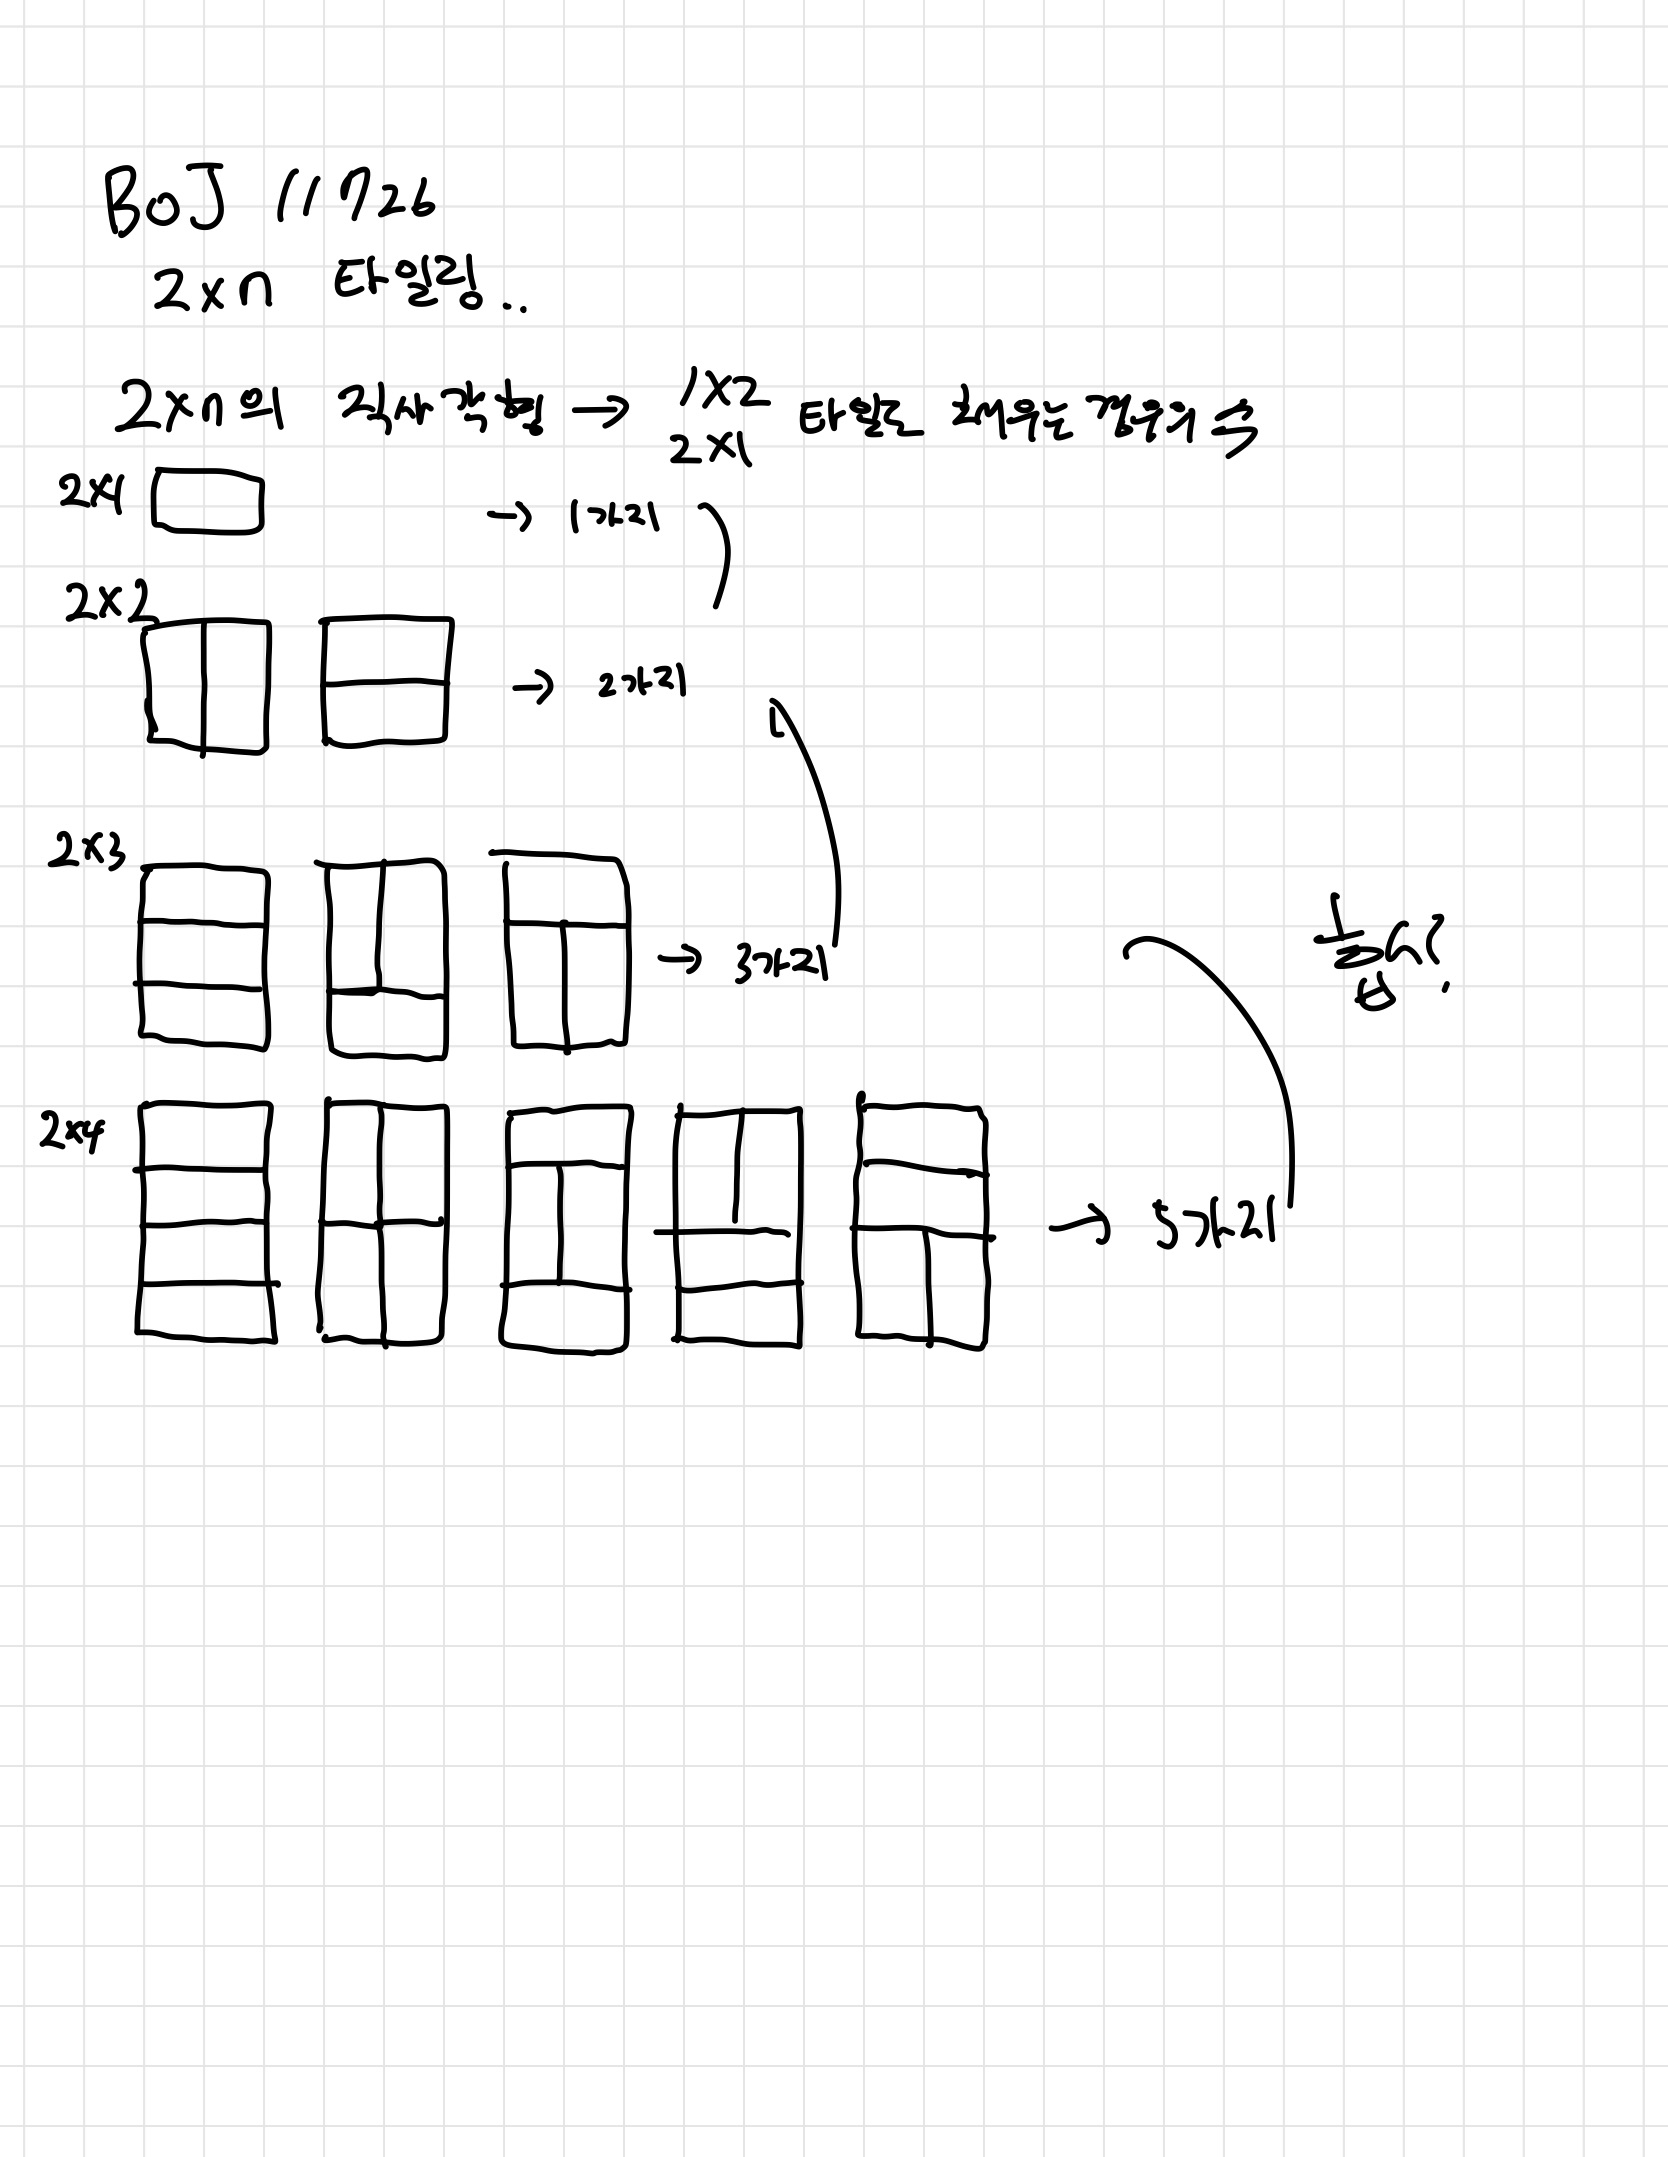 BOJ 11726
2xn 타일링..
2xn의 직사각형 → 1X2
2X1 타일로 채우는 경우의 수
2x1 → 1가지
2x2 → 2가지
2x3 → 3가지
2x4 → 5가지